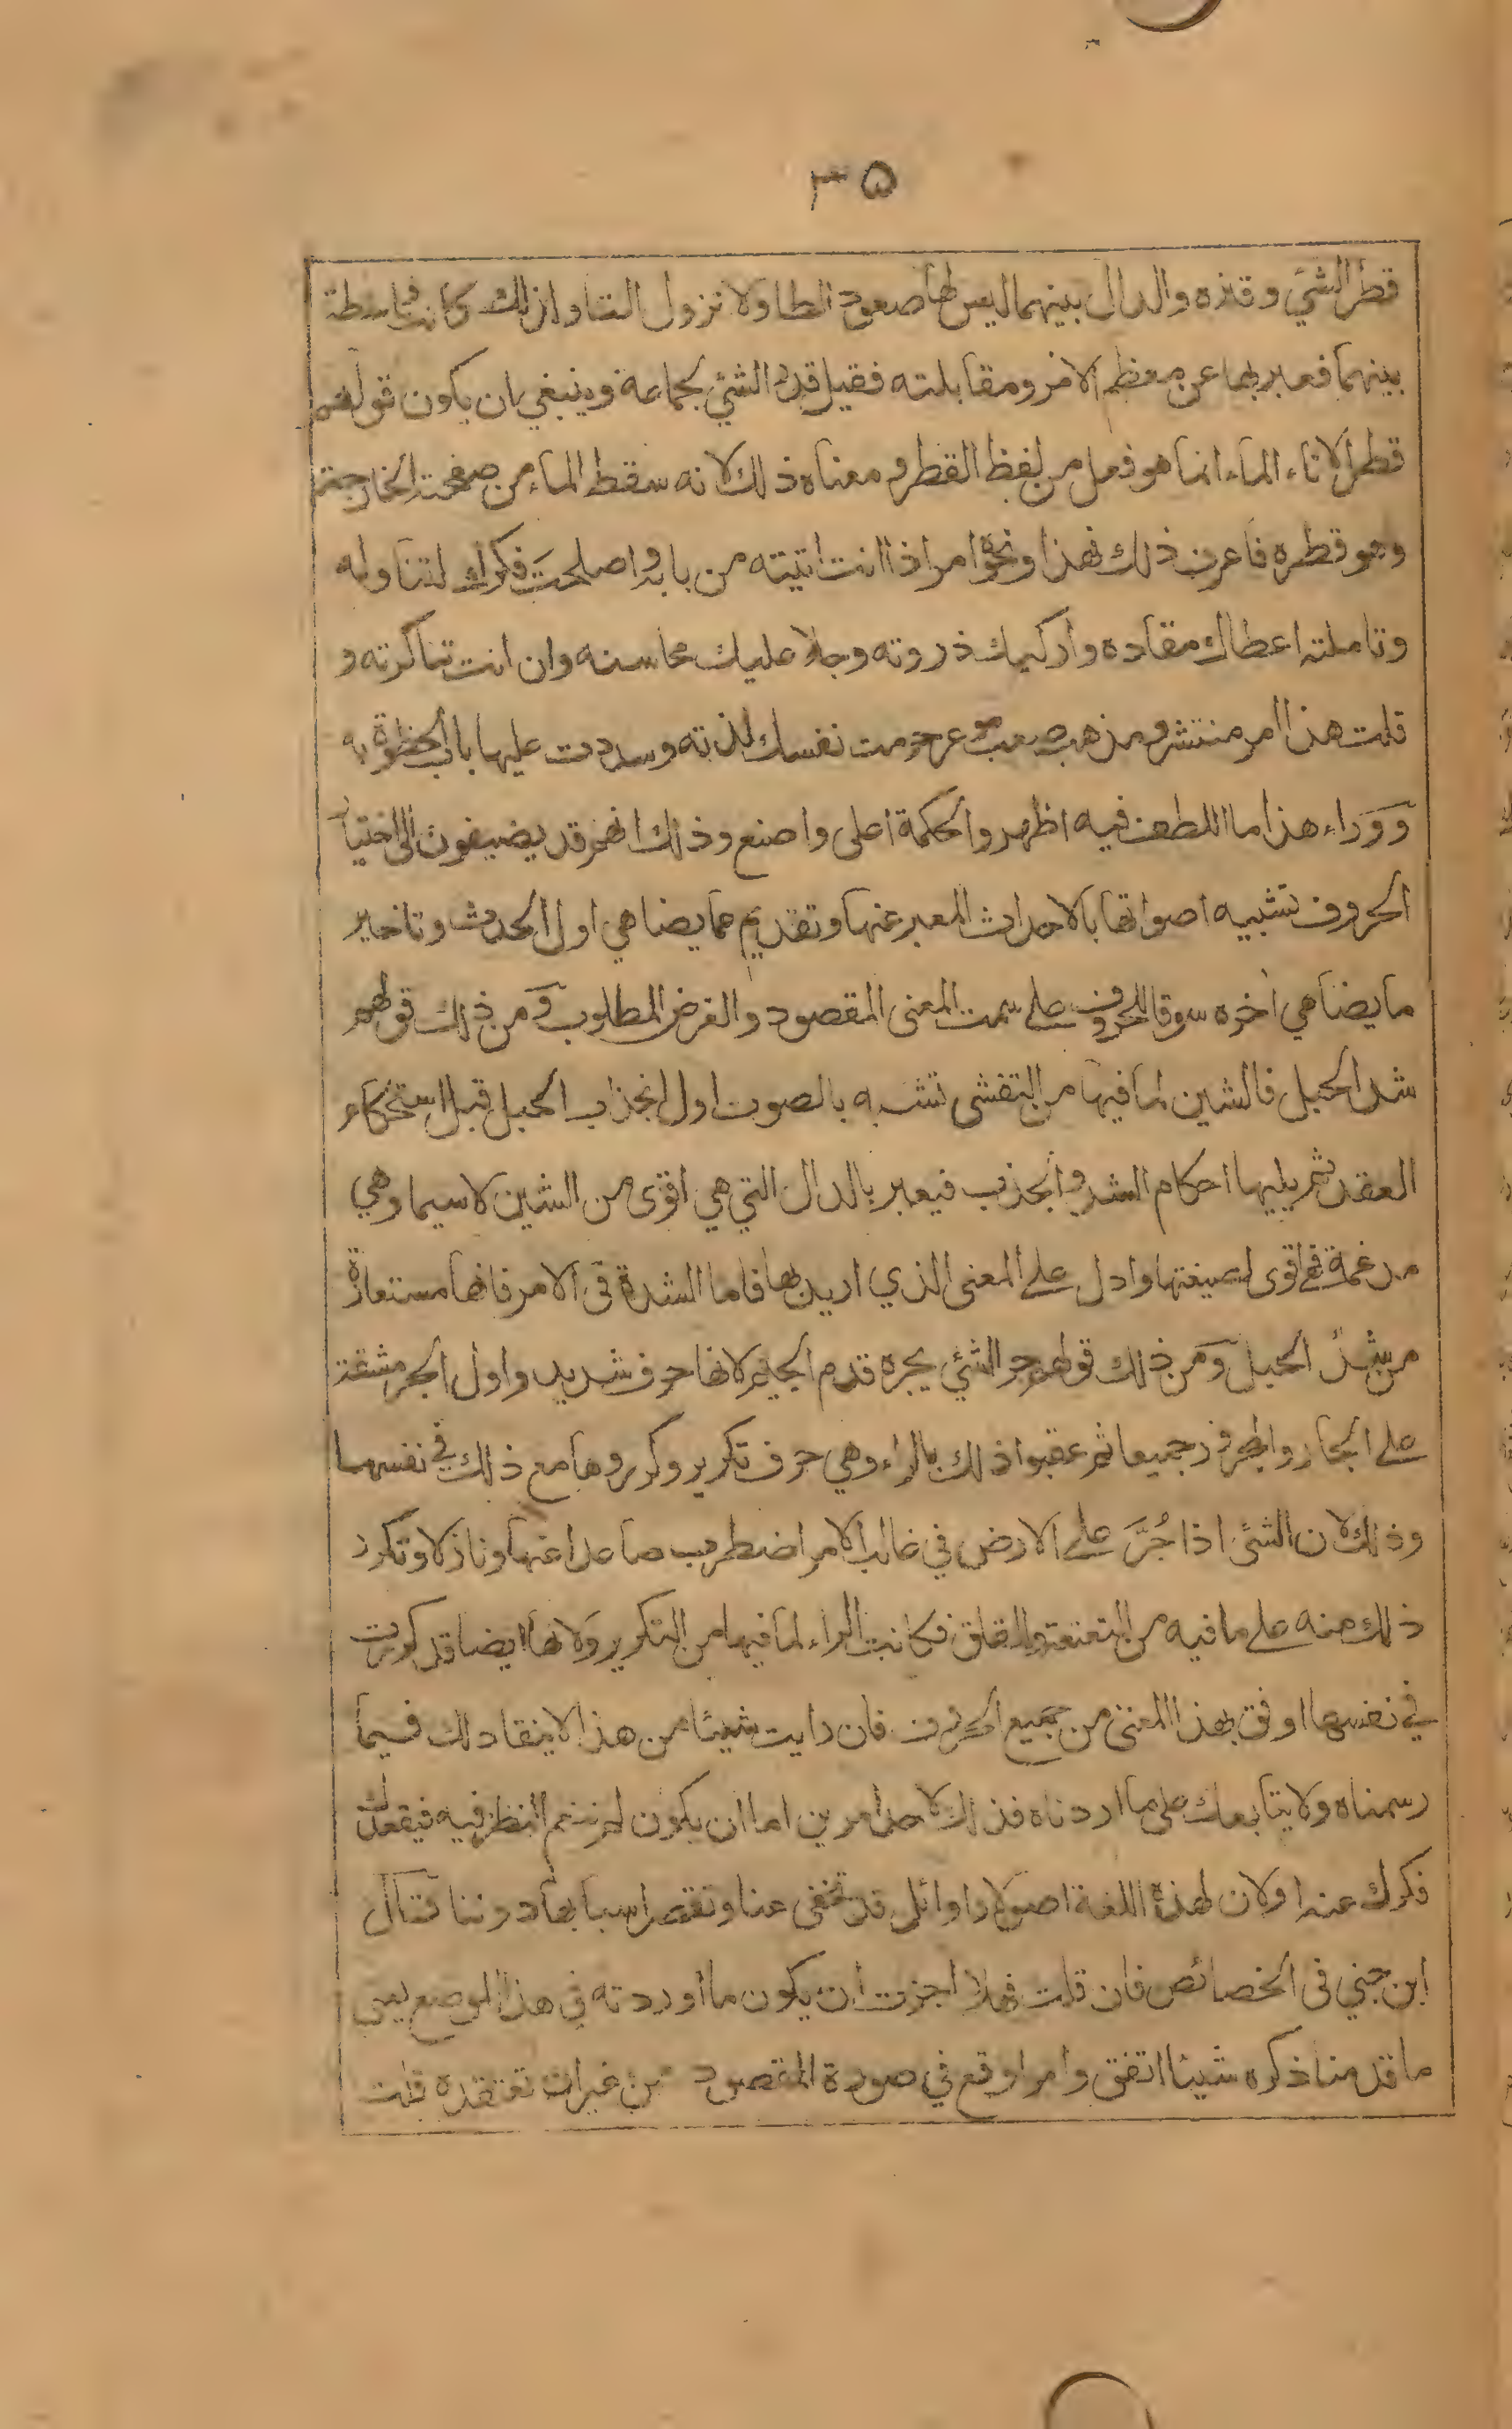 ٣٥
قطر الشئ وقتره والدال بينهما ليس لها صعود الطا ولا نزول التا واذلك كانت واسطة
بينهما فعبر بها عن معظم الامر ومقابلته فقيل قدر الشئ لجماعة وينبغي ان يكون قولهم
قطر الاناء الماء انما هو فعل من لفظ القطر ومعناه ذلك لانه سقط الماء من صفحته الخارجة
وهو قطره فاعرف ذلك فهذا ونحوه امر اذا انت اتيته من بابه واصلحت فكرك لتناوله
وتاملته اعطاك مقاده واركبك ذروته وجلا عليك محاسنه وان انت تناكرته و
قلت هذا امر منتشر ومذهب صعب موعر حرمت نفسك لذته وسددت عليها باب الحظوة به
ووراء هذا ما اللطف فيه اظهر والحكمة اعلى واصنع وذلك انهم قد يضيفون الى اختيار
الحروف تشبيه اصواتها بالاحداث المعبر عنها وتقديم مما يضاهي اول الحدث وتاخير
ما يضاهي اخره سوقا للحروف على سمت المعنى المقصود والغرض المطلوب ومن ذلك قولهم
شد الحبل فالشين لما فيها من التفشى تشبه بالصوت اول انجذاب الحبل قبل استحكام
العقد ثم يليها احكام الشد والجذب فيعبر بالدال التي هي اقوى من الشين لاسيما وهي
مدغمة فهي اقوى لصيغتها وادل على المعنى الذي اريد بها فاما الشدة فى الامر فانها مستعارة
من شد الحبل ومن ذلك قولهم جر الشئ يجره قدم الجيم لانها حرف شديد واول الجر مشقة
على الجار والمجرور جميعا ثم عقبوا ذلك بالراء وهي حرف تكرير وكرروها مع ذلك في نفسها
وذلك لان الشئ اذا جُرَّ على الارض في غالب الامر اضطرب صاعدا عنها ونازلا وتكرر
ذلك منه على ما فيه من التعتعة والقلق فكانت الراء لما فيها من التكرير ولانها ايضا قد كررت
في نفسها اوفق بهذا المعنى من جميع الحروف فان رايت شيئا من هذا لا ينقاد لك فيما
رسمناه ولا يتابعك على ما اردناه فذلك لاحد امرين اما ان يكون لم تنعم النظر فيه فيقعد بك
فكرك عنه او لان لهذه اللغة اصولا واوائل قد تخفى عنا وتقصر اسبابها دوننا قال
ابن جني فى الخصائص فان قلت فهلا اجزت ان يكون ما اوردته فى هذا الموضع يعني
ما قدمنا ذكره شيئا اتفق وامرا وقع في صورة المقصود من غير ان تعتقده قلت